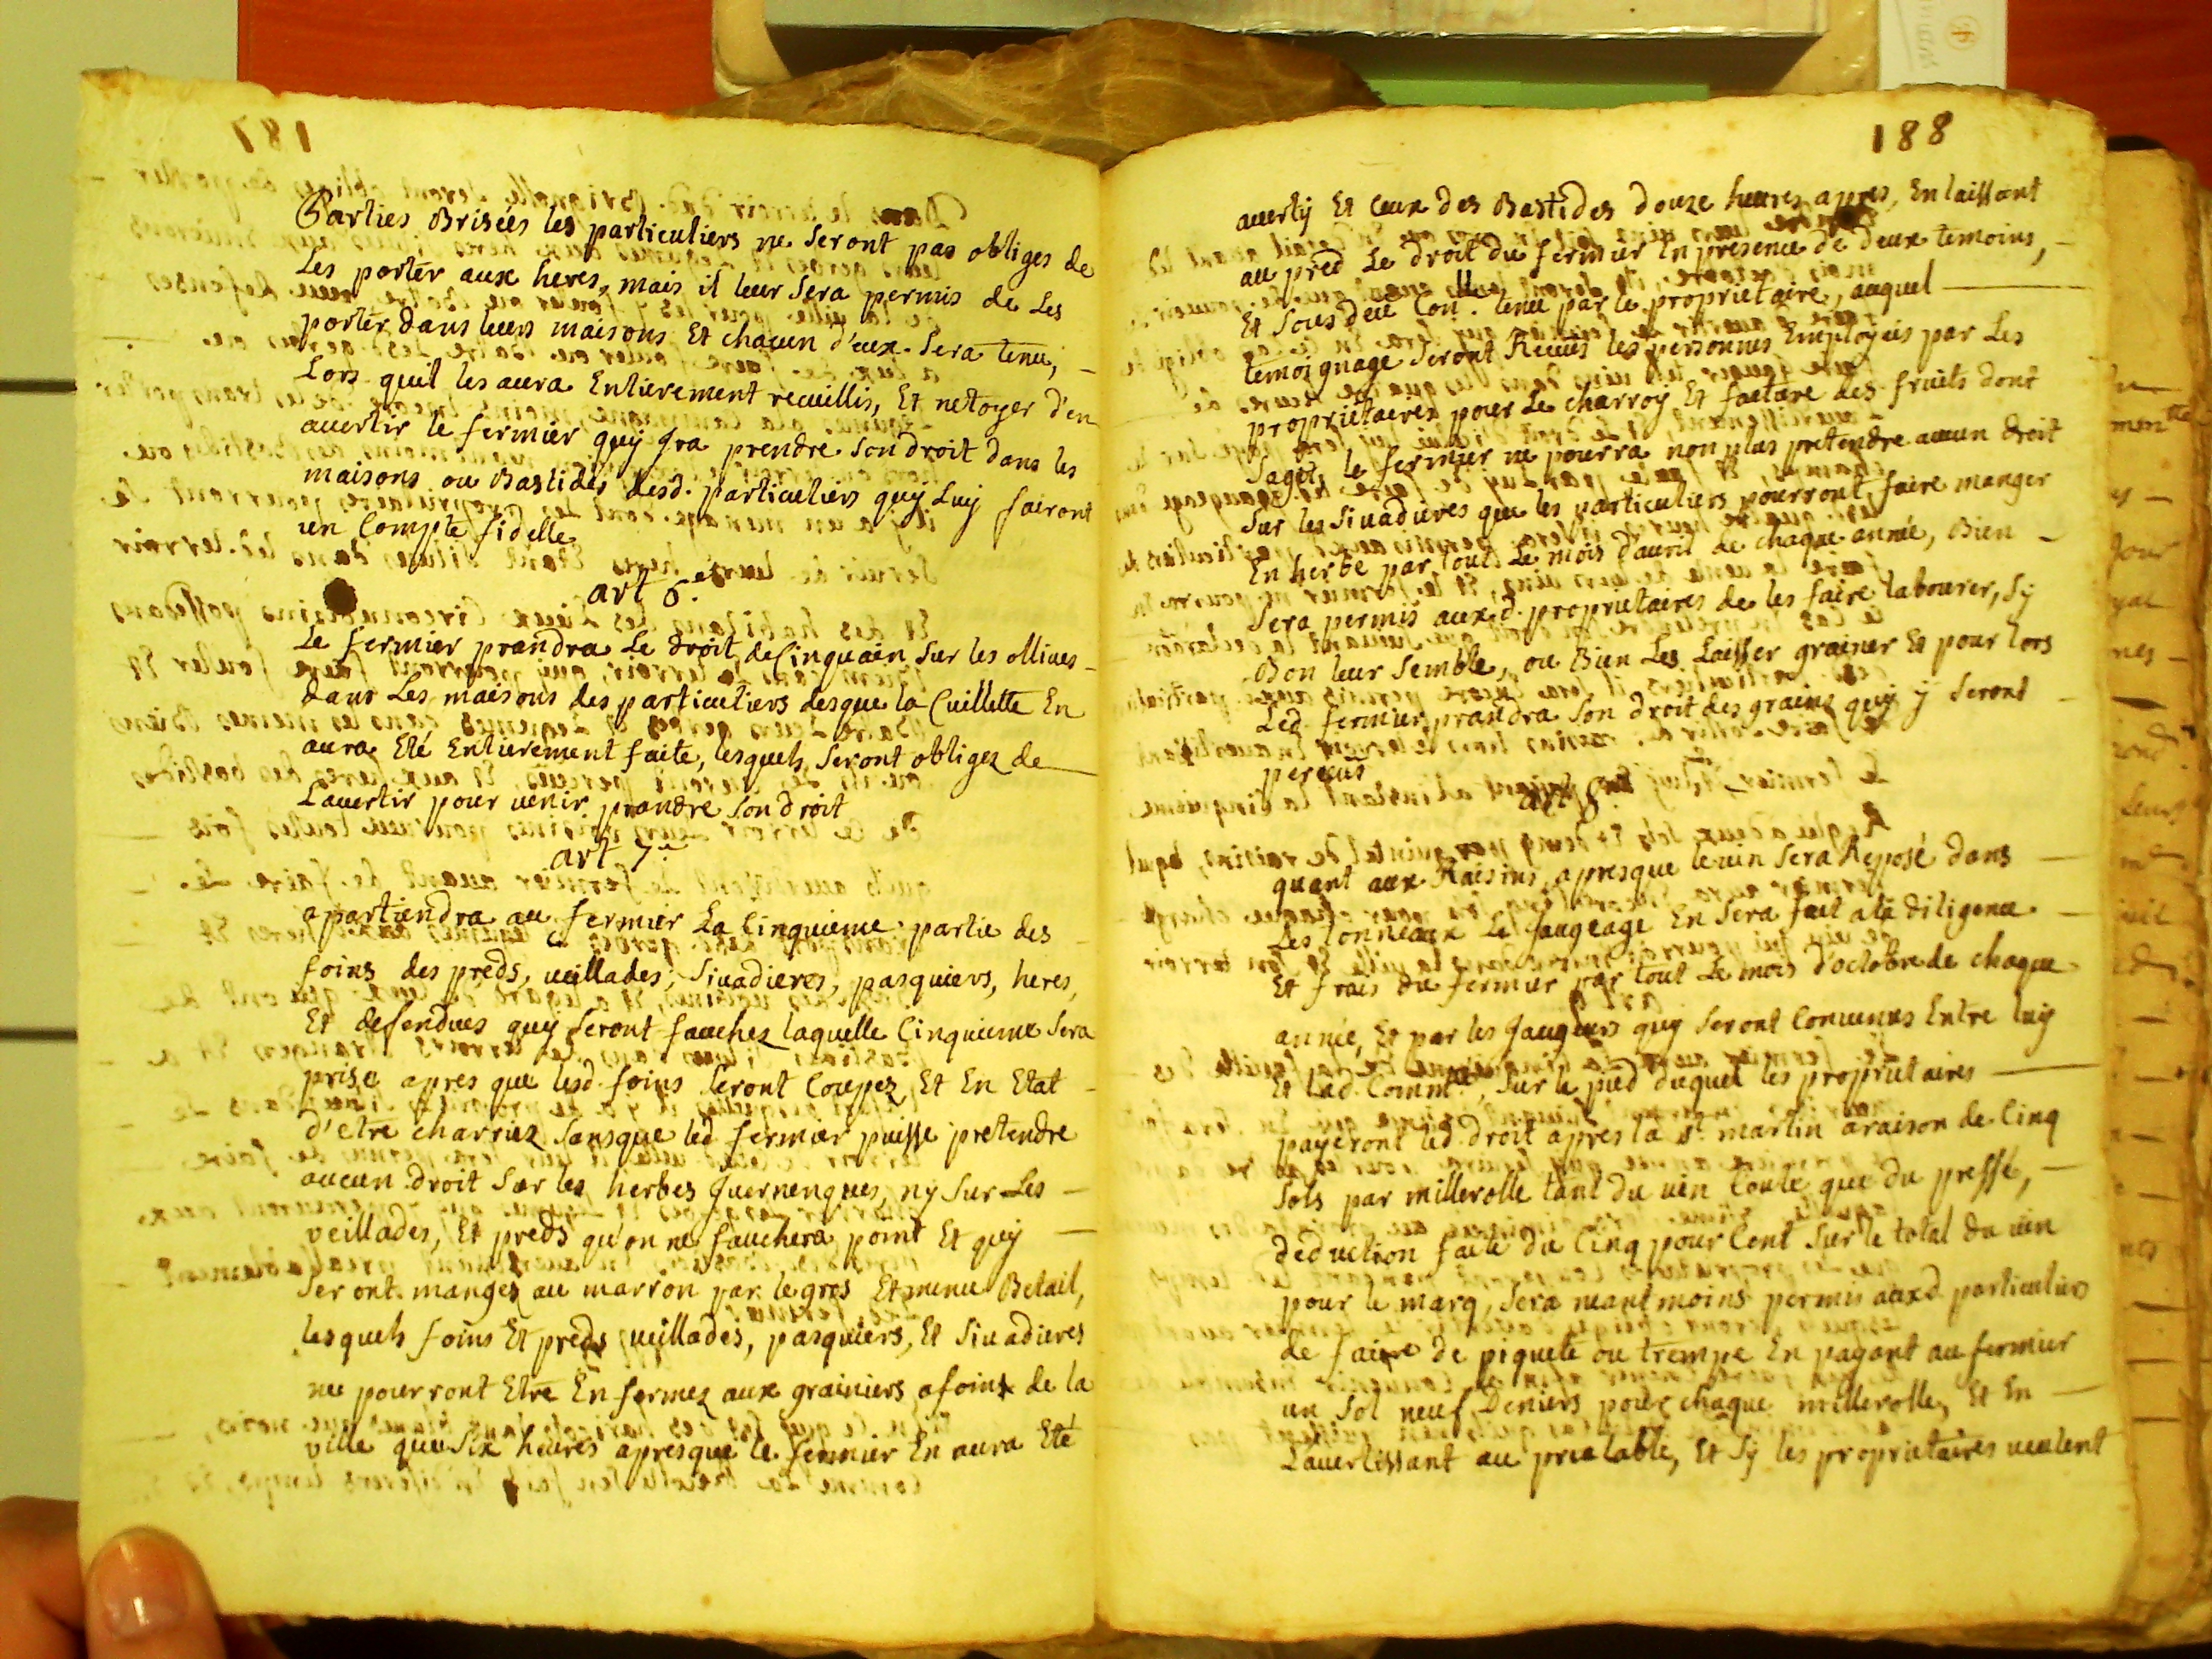 Parties Brisées les particuliers ne seront pas obliges de
Les porter aux heres, mais il leur sera permis de Les
porter dans leurs maisons Et chacun d'eux sera tenu,
Lors quil les aura Entierement recuillis, Et netoyer d'en
avertir le fermier quy Jra prendre son droit dans les
maisons ou Bastides desd. particuliers quy Luy fairont
un Compte fidelle
art 6.e
Le fermier prandra Le droit de Cinquain sur les ollives
dans Les maisons des particuliers desque la Cuillette En
aura Eté Entierement faite, lesquels seront obligez de
Lavertir pour venir prandre son droit
art 7.e
apartiendra au fermier La Cinquieme partie des
foins des preds, veillades, sivadieres, pasquiers, heres,
Et defendues quy seront fauchez laquelle Cinquieme sera
prise apres que lesd. foins seront Coupez Et En Etat
d'etre charriez sansque led fermier puisse pretendre
aucun droit sur les herbes Juernenques, ny sur Les
veillades, Et preds qu'on ne fauchera point Et quy
seront mangez au marron par le gros Et menu Betail,
lesquels foins Et preds veillades, pasquiers, Et sivadieres
ne pourront Etre Enfermez aux grainiers afoins de la
ville que six heures apresque le fermier En aura Eté
188
averty Et Ceux des Bastides douze heures apres, En laissant
au pred Le droit du fermier En presence de deux temoins,
Et sous deue Con.lle tenue par le proprietaire, auquel
temoignage seront Recues les personnes Employées par Les
proprietaires pour Le charroy Et facture des fruits dont
sagit, le fermier ne pourra non plus pretendre aucun droit
sur les sivadieres que les particuliers pourront faire manger
En herbe par tout Le mois d'avril de chaque année, Bien
sera permis auxd. proprietaires de les faire labourer, sy
Bon leur semble, ou Bien Les Laisser grainer Et pour lors
Led. fermier prandra son droit des grains quy y seront
perceus
art 8.e
quant aux Raisins, apresque levin sera Reposé dans
Les tonneaux Le Jaugeage En sera fait ala diligence
Et frais du fermier par tout Le mois d'octobre de chaque
année, Et par les Jaugeurs quy seront Convenus Entre luy
Et Lad. Comm.té, sur le pied duquel les proprietaires
payeront led. droit apres la st martin araison de Cinq
sols par millerolle tant du vin Coule que du pressé,
deduction faite du Cinq pour Cent sur le total du vin
pour le marq, sera neantmoins permis auxd. particuliers
de faire de piquete ou trempe En payant au fermier
un sol neuf Deniers pour chaque millerolle, Et En
L'avertissant au prealable, Et sy les proprietaires veulent